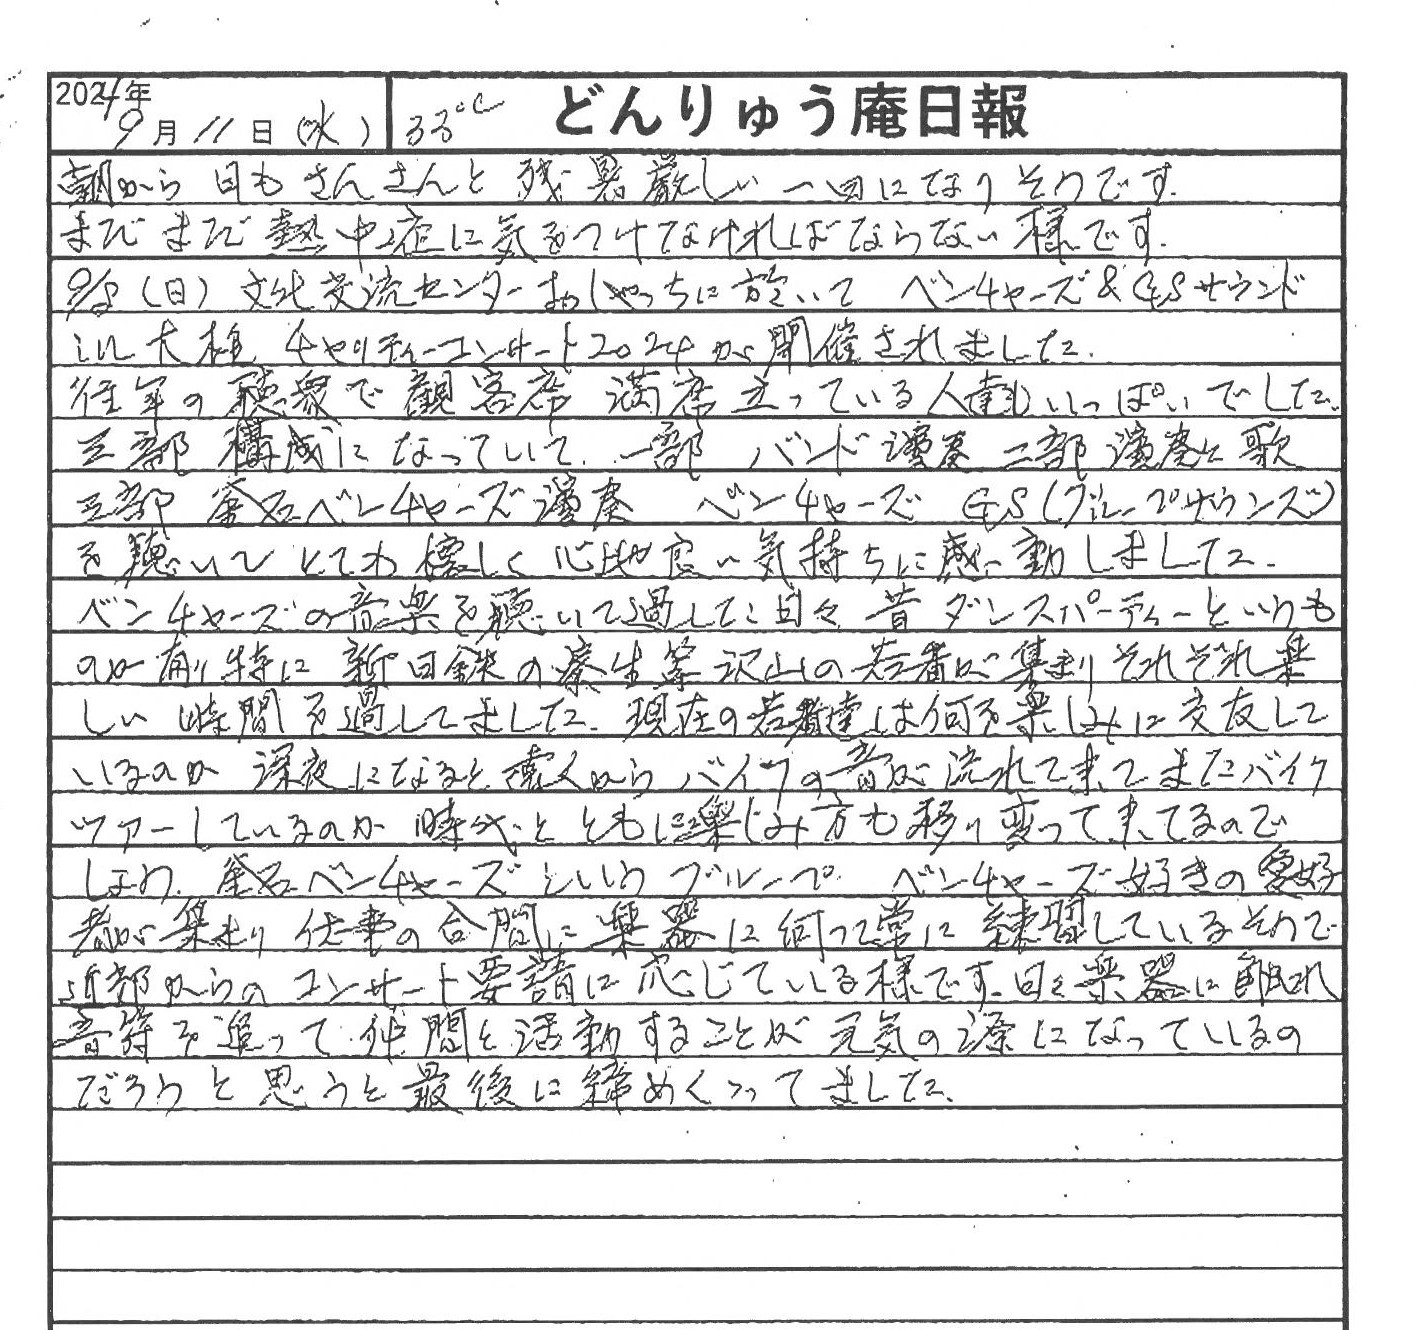 2024年
9月11日(水) 33℃ どんりゅう庵日報
朝から日もさんさんと残暑厳しい一日になりそうです.
まだまだ熱中症に気をつけなければならない様です.
9/8(日)文化交流センターおしゃっちに於いて ベンチャーズ&GSサウンド
in大槌 チャリティーコンサート2024が開催されました.
往年の聴衆で観客席 満席 立っている人達もいっぱいでした.
三部構成になっていて. 一部 バンド演奏 二部 演奏と歌
三部 釜石ベンチャーズ演奏 ベンチャーズ GS(グループサウンズ)
を聴いてとても懐しく心地良い気持ちに感動しました.
ベンチャーズの音楽を聴いて過した日々 昔ダンスパーティーというも
のが有り特に新日鉄の寮生等沢山の若者が集まりそれぞれ楽
しい時間を過してました. 現在の若者達は何を楽しみに交友して
いるのか 深夜になると遠くからバイクの音が流れて来てまたバイク
ツアーしているのか 時代とともに楽しみ方も移り変って来てるので
しょう. 釜石ベンチャーズというグループ ベンチャーズ好きの愛好
者が集まり仕事の合間に楽器に向って常に練習しているそうで
近郊からのコンサート要請に応じている様です. 日々楽器に触れ
音符を追って仲間と活動することが元気の源になっているの
だろうと思うと最後に締めくくってました.